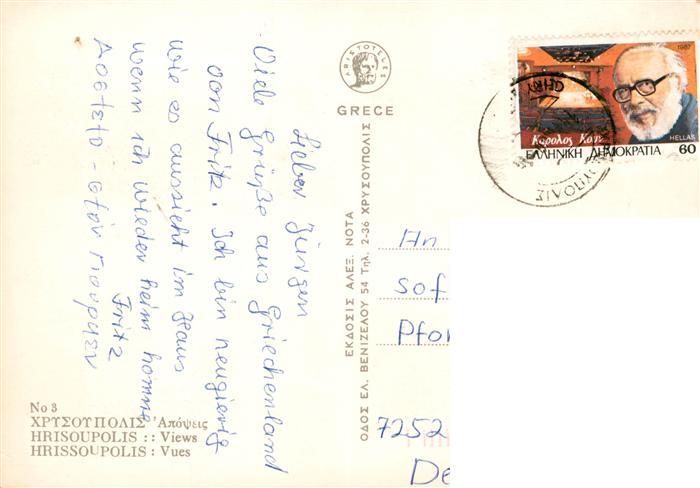 Lieber Jürgen
Viele Grüße aus Griechenland
von Fritz. Ich bin neugierig
wie es aussieht im Haus
wenn ich wieder heim komme
Fritz
ARISTOTELES
GRECE
ΕΚΔΟΣΙΣ ΑΛΕΞ. ΝΟΤΑ
ΟΔΟΣ ΕΛ. ΒΕΝΙΖΕΛΟΥ 54 Τηλ. 2-36 ΧΡΥΣΟΥΠΟΛΙΣ
1987
HELLAS
Κάρολος Κουν
ΕΛΛΗΝΙΚΗ ΔΗΜΟΚΡΑΤΙΑ 60
An
Sof
Pfor
7252
De
No 3
ΧΡΥΣΟΥΠΟΛΙΣ Ἀπόψεις
HRISOUPOLIS :: Views
HRISSOUPOLIS : Vues